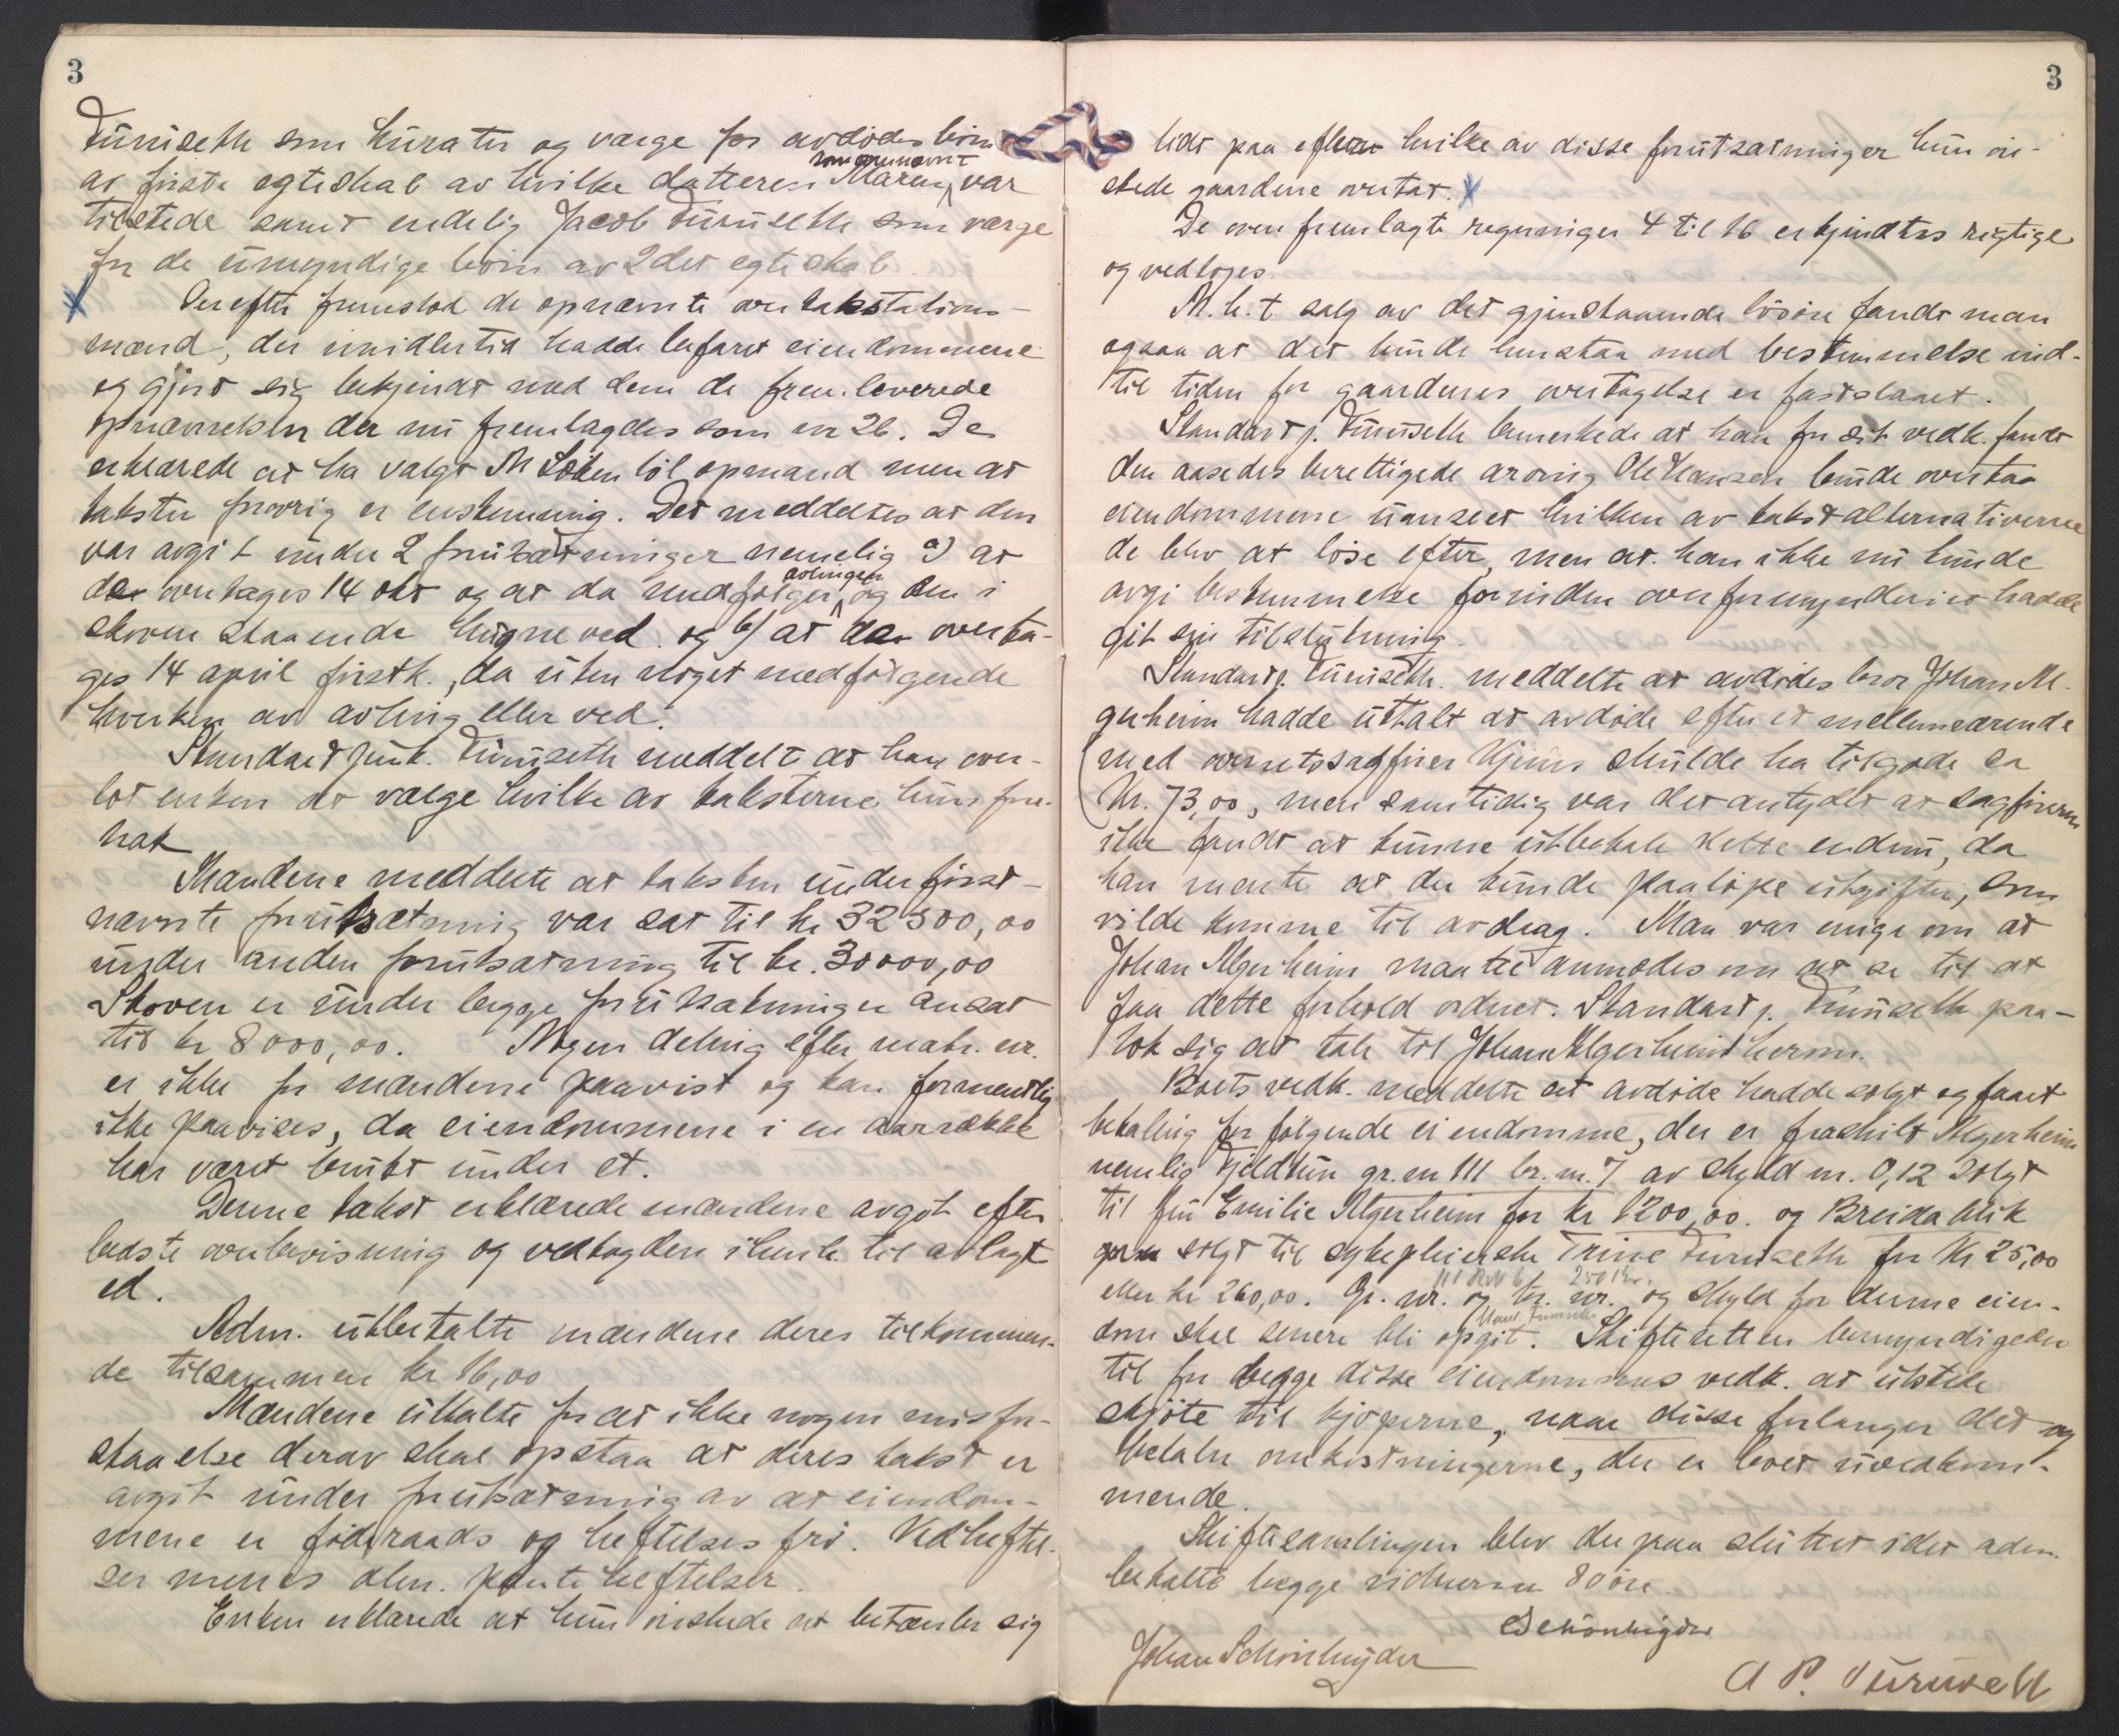 3
Furuseth som kurator og værge for avdødes børn
av første egteskab av hvilke datteren Maren, som gjennævnt var
tilstede samt endelig Jacob Furuseth som værge
for de umyndige børn av 2det egteskab.
Derefter fremstod de opnævnte overtakstations-
mænd, der imidlertid hadde befaret eiendommene
og gjort sig bekjendt med dem de fremleverede
opnævnelsen der nu fremlagdes som nr 26. De
erklærede at ha valgt M Löken til opmand men at
taksten forøvrig er enstemmig. Det meddeltes at den
var avgit under 2 forutsætninger nemelig a) at
der overtages 14 okt og at da medfølger avlingen og den i
skoven staaende hugne ved og b) at der overta-
ges 14 april førstk., da uten noget medfølgende
hverken av avling eller ved.
Standartjunk. Furuseth meddelte at han over-
lot enken at vælge hvilke av taksterne hun fore-
trak
Mændene meddelte at taksten under først-
nævnte forutsætning var sat til kr 32500,00
under anden forutsætning til kr. 30000,00
Skoven er under begge forutsætninger ansat
til kr 8000,00. Nogen deling efter matr. nr.
er ikke for mændene paavist og kan formentlig
ikke paavises, da eiendommene i en aarrække
har været brukt under et.
Denne takst erklærede mændene avgit efter
bedste overbevisning og vedtog den i henh. til avlagt
ed.
Adm. utbetalte mændene deres tilkommen-
de tilsammen kr 16,00
Mændene uttalte for at ikke nogen misfor-
staaelse derav skal opstaa at deres takst er
avgit under forutsætning av at eiendom-
mene er föderaads og heftelses fri. Ved heftel-
ser menes alm. pante heftelser.
Enken erklærede at hun ønskede at betænke sig
3
tidt paa efter hvilke av disse forutsætninger hun øn-
skede gaardene overtat.
De oven fremlagte regninger 4 til 16 erkjendtes rigtige
og vedtoges.
M.h.t salg av det gjenstaaende lösöre fandt man
ogsaa at det kunde henstaa med bestemmelse ind-
til tiden for gaardenes overtagelse er fastslaaet.
Standartj. Furuseth bemerkede at han for sit vedk. fandt
den aasædes berettigede arving Ole Hansen burde overtaa
eiendommene uanseet hvilken av takstalternativerne
de blev at løse efter, men at han ikke nu kunde
avgi bestemmelse forinden overformynderiet hadde
git sin tilslutning.
Standartj. Furuseth. meddelte at avdødes bror Johan Al-
gerheim hadde uttalt at avdøde efter et mellemværende
med overretssagfører Hjuus skulde ha tilgode ca
Kr. 73,00, men samtidig var det antydet at sagføreren
ikke fandt at kunne utbetale dette endnu, da
han mente at der kunde paaløpe utgifter, som
vilde komme til avdrag. Man var enige om at
Johan Algerheim maatte anmodes om at se til at
faa dette forhold ordnet. Standartj. Furuseth paa-
tok sig at tale til Johan Algerheim herom.
Boets vedk. meddelte at avdøde hadde solgt og faaet
betaling for følgende eiendomme, der er fraskilt Algerheim
nemlig Fjeldtun gr. nr 111 br. nr. 7 av skyld m. 0,12 solgt
til fru Emilie Algerheim for kr 1200,00. og Breidablik
solgt til sykepleierske Trine Furuseth for Kr 25,00
eller kr 260,00. Gr. nr. og br. nr. og skyld for denne eien-
dom skal senere bli opgit. Skifteretten bemyndigedes
til for begge disse eiendommes vedk. at utstede
skjöte til kjøperne, naar disse forlanger det og
betaler omkostningerne, der er boet uvedkom-
mende.
Skiftesamlingen blev derpaa sluttet idet adm.
betalte begge vidnerne 80 øre.
Schönheyder
Johan Schönheyder
A P. Furuseth